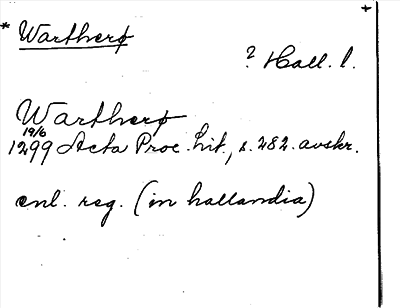 * Wartherø
? Hall. l.
Wartherø
19/6
1299 Acta Proc. hit., s. 282. avskr.
enl. reg. (in hallandia)